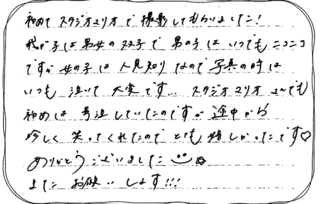 初めて スタジオマリオ で 撮影してもらいました!
我が子は男女の双子で 男の子は いつでもニコニコ
ですが 女の子は 人見知りなので 写真の時は
いつも 泣いて 大変です… スタジオマリオさんでも
初めは 号泣していたのですが 途中から
珍しく 笑ってくれたので とても 嬉しかったです♡
ありがとうございました
また お願いします!!!